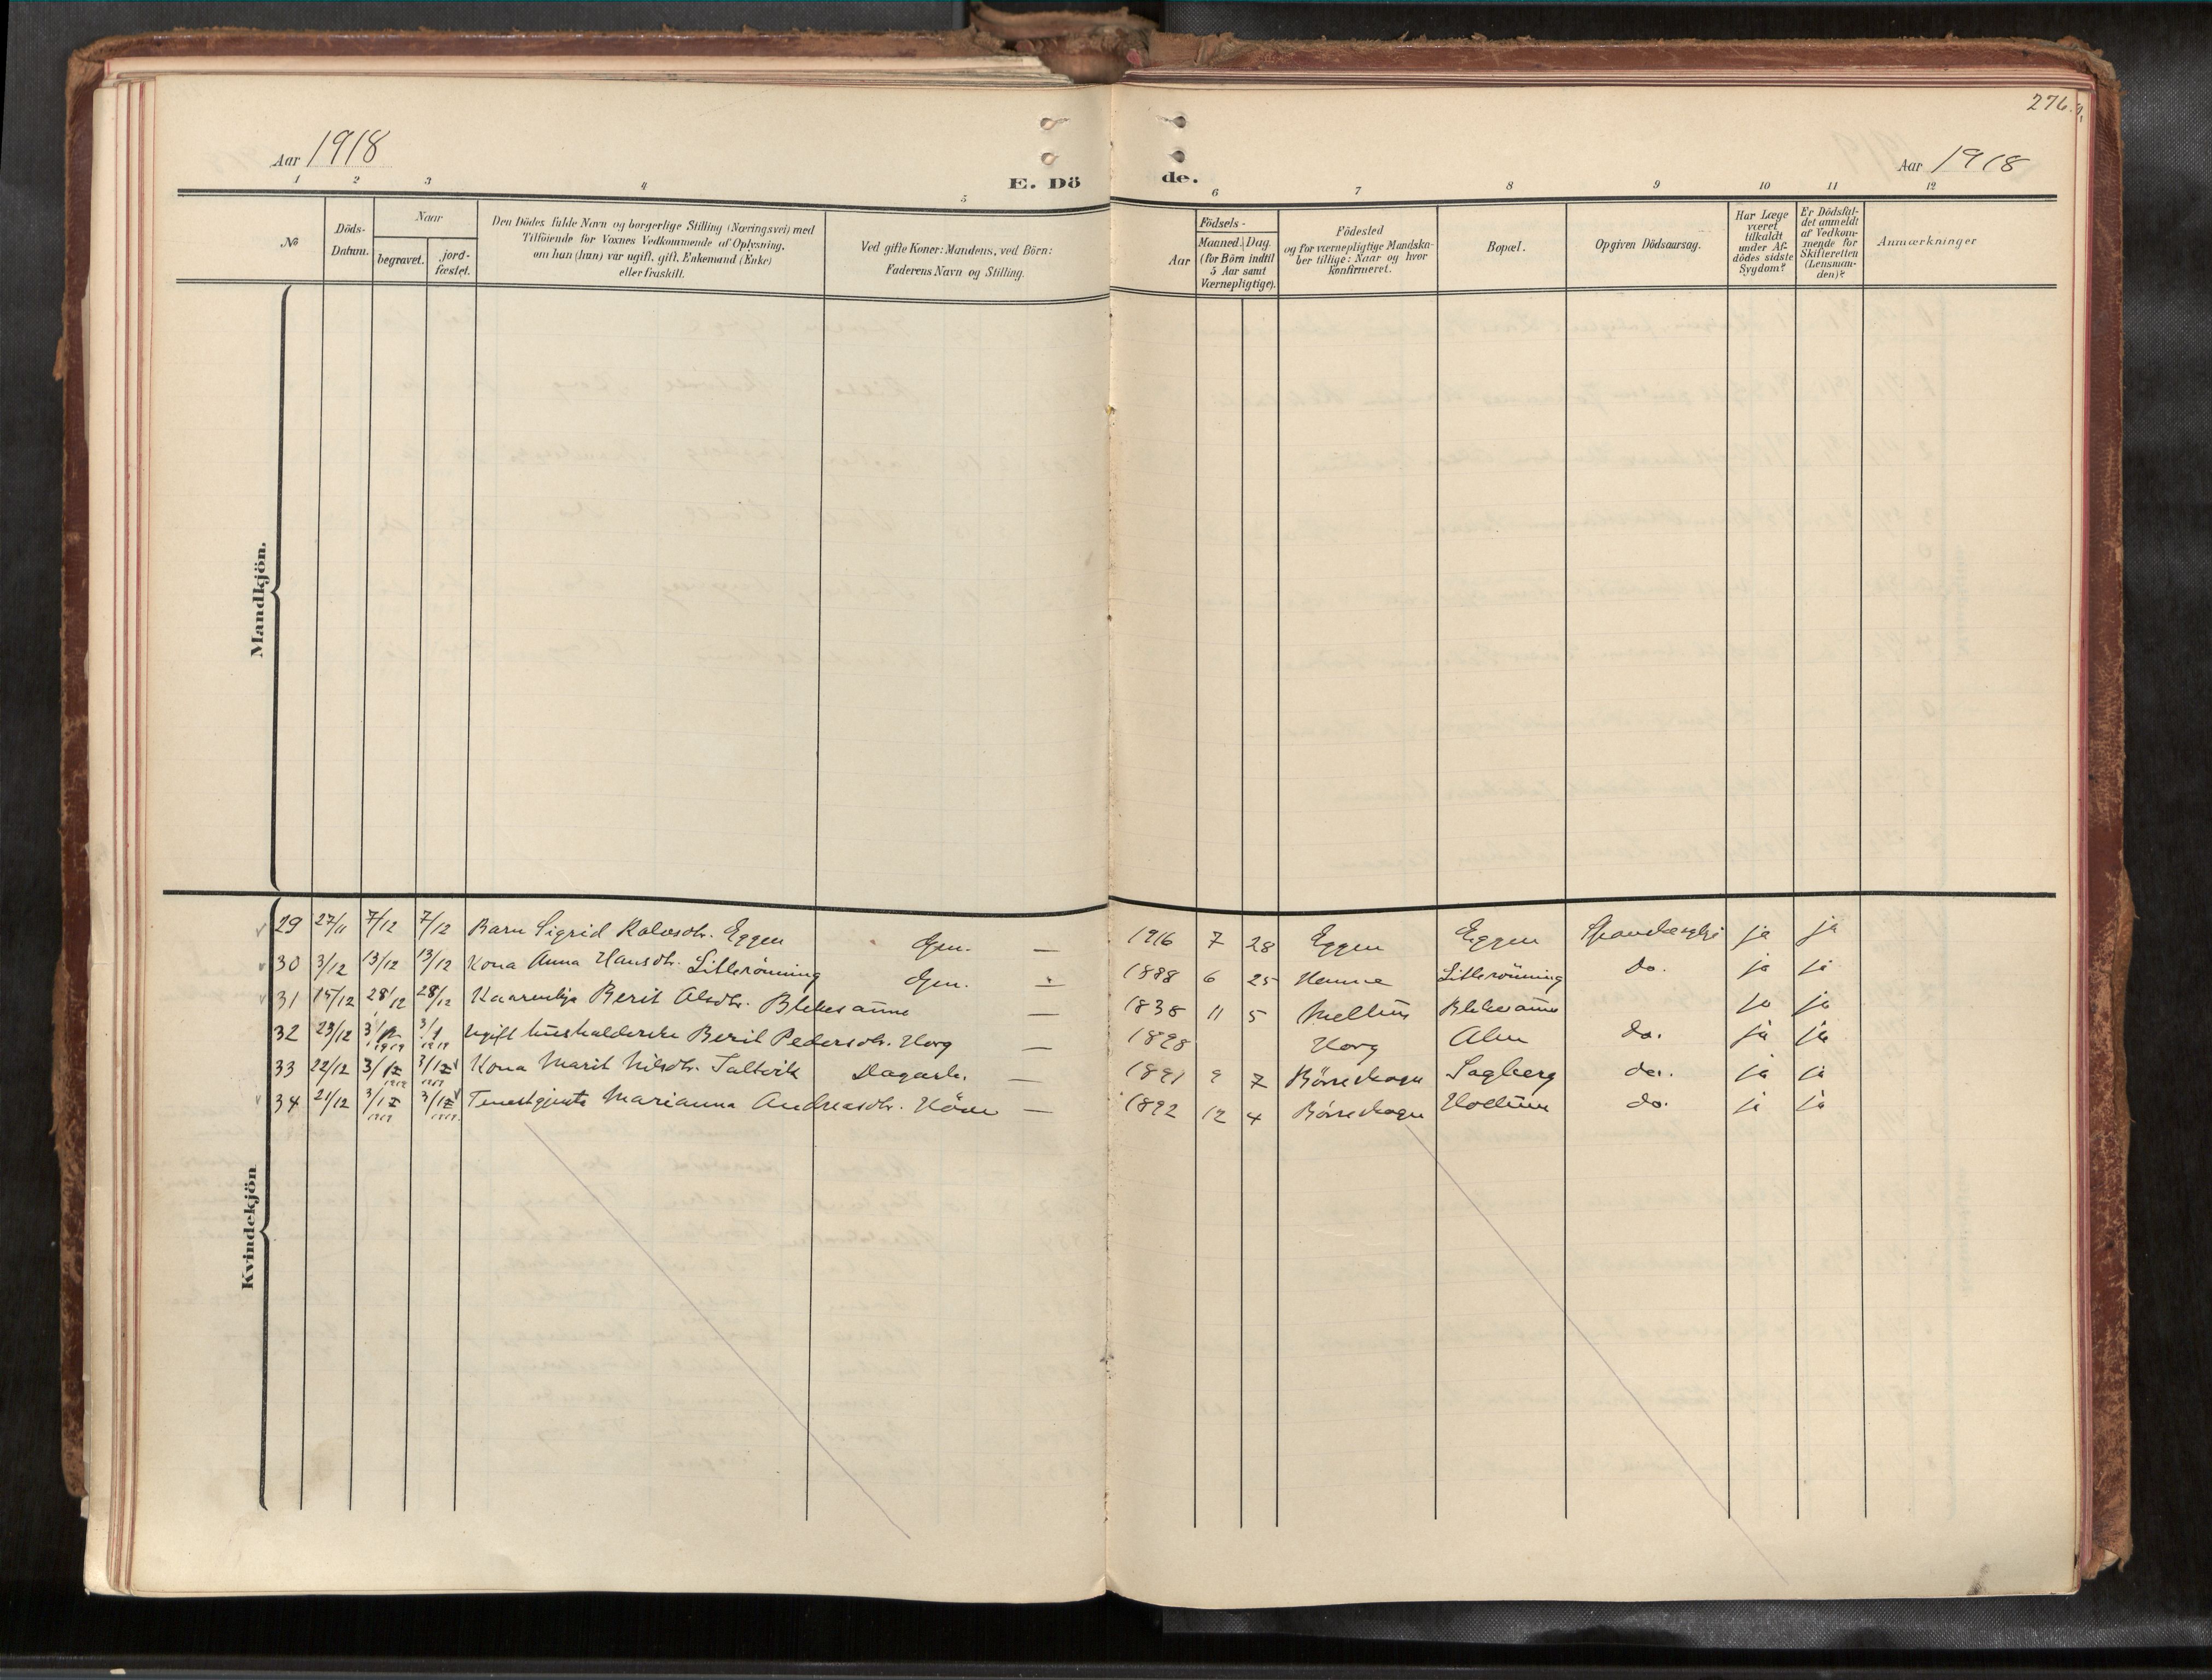 276.
Aar 1918
Aar 1918
E. Dö de.
1 2 3 4 5 6 7 8 9 10 11 12
№
Döds-Datum.
Naar
begravet.
jord-fæstet.
Den Dödes fulde Navn og borgerlige Stilling (Næringsvei) med
Tilföiende for Voxnes Vedkommende af Oplysning,
om hun (han) var ugift, gift, Enkemand (Enke)
eller fraskilt.
Ved gifte Koner: Mandens, ved Börn:
Faderens Navn og Stilling.
Födsels-
Aar
Maaned. Dag.
(for Börn indtil
5 Aar samt
Værnepligtige).
Födested
og for værnepligtige Mandska-
ber tillige: Naar og hvor
konfirmeret.
Bopæl.
Opgiven Dödsaarsag.
Har Læge
været
tilkaldt
under Af-
dödes sidste
Sygdom?
Er Dödsfal-
det anmeldt
af Vedkom-
mende for
Skifteretten
(Lensman-
den)?
Anmærkninger
Mandkjön.
Kvindekjön
29 27/11 7/12 7/12 Barn Sigrid Eggen Gm. — 1916 7 28 Eggen Eggen ja ja
30 3/12 13/12 13/12 Kona Anna Hansdtr. Litlerönning Gm. — 1888 6 25 Litlerönning do. ja ja
31 15/12 28/12 28/12 Berit Blekesaune — 1838 11 5 Melhus Blekesaune ja ja
32 23/12 3/1 1919 3/1 1919 Ugift husholderske Berit Pedersdtr. Horg — 1898 Horg do. ja ja
33 22/12 3/1 1919 3/1 1919 Kona Marit Nilsdtr. Saltvik Dagarb. — 1891 9 7 Börseskogn Sagberg do. ja ja
34 21/12 3/1 1919 3/1 1919 Tenestgjenta Marianna Andreasdtr. — 1892 12 4 Börseskogn do. ja ja